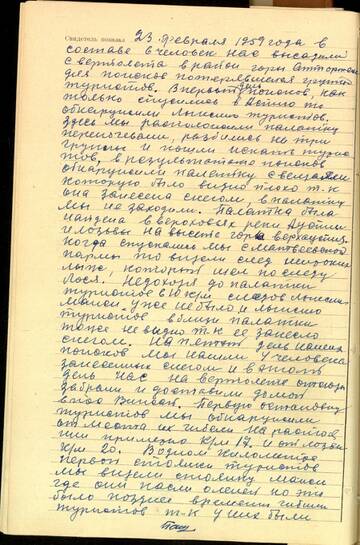 Свидетель показал 23 февраля 1959 года в
составе 6 человек нас высадили
с вертолета в район горы Отортен
для поисков потерявшейся группы
туристов. В первый день поисков, как
только спустились в Ауспию то
обнаружили лыжню туристов.
Здесь мы расположили палатку
переночевали, разбились на три
группы и пошли искать турис
тов, в результате поисков
обнаружили палатку с вещами
которую было видно плохо т.к
она занесена снегом, в палатку
мы не заходили. Палатка была
найдена в верховьях реки Ауспии
и Лозьвы на высоте горы
Когда спускались мы с
пармы то видели след широких
лыж, который шел по следу
лося. Недоходя до палатки
туристов в 10 км следов лыжни
манси. Уже не было и лыжню
туристов вблизи палатки
тоже не видно т.к ее занесло
снегом. На пятый день наших
поисков мы нашли 4 человека
занесенных снегом и в этот
день нас на вертолете оттуда
забрали и доставили домой
в пос Вижай. Первую остановку
туристов мы обнаружили
от места их гибели на расстоя
нии примерно км 17. и от Лозьвы
км 20. В одном километре
первой стоянки туристов
мы видели стоянку манси
где они пасли оленей но это
было позднее времени гибели
туристов т-к у них были